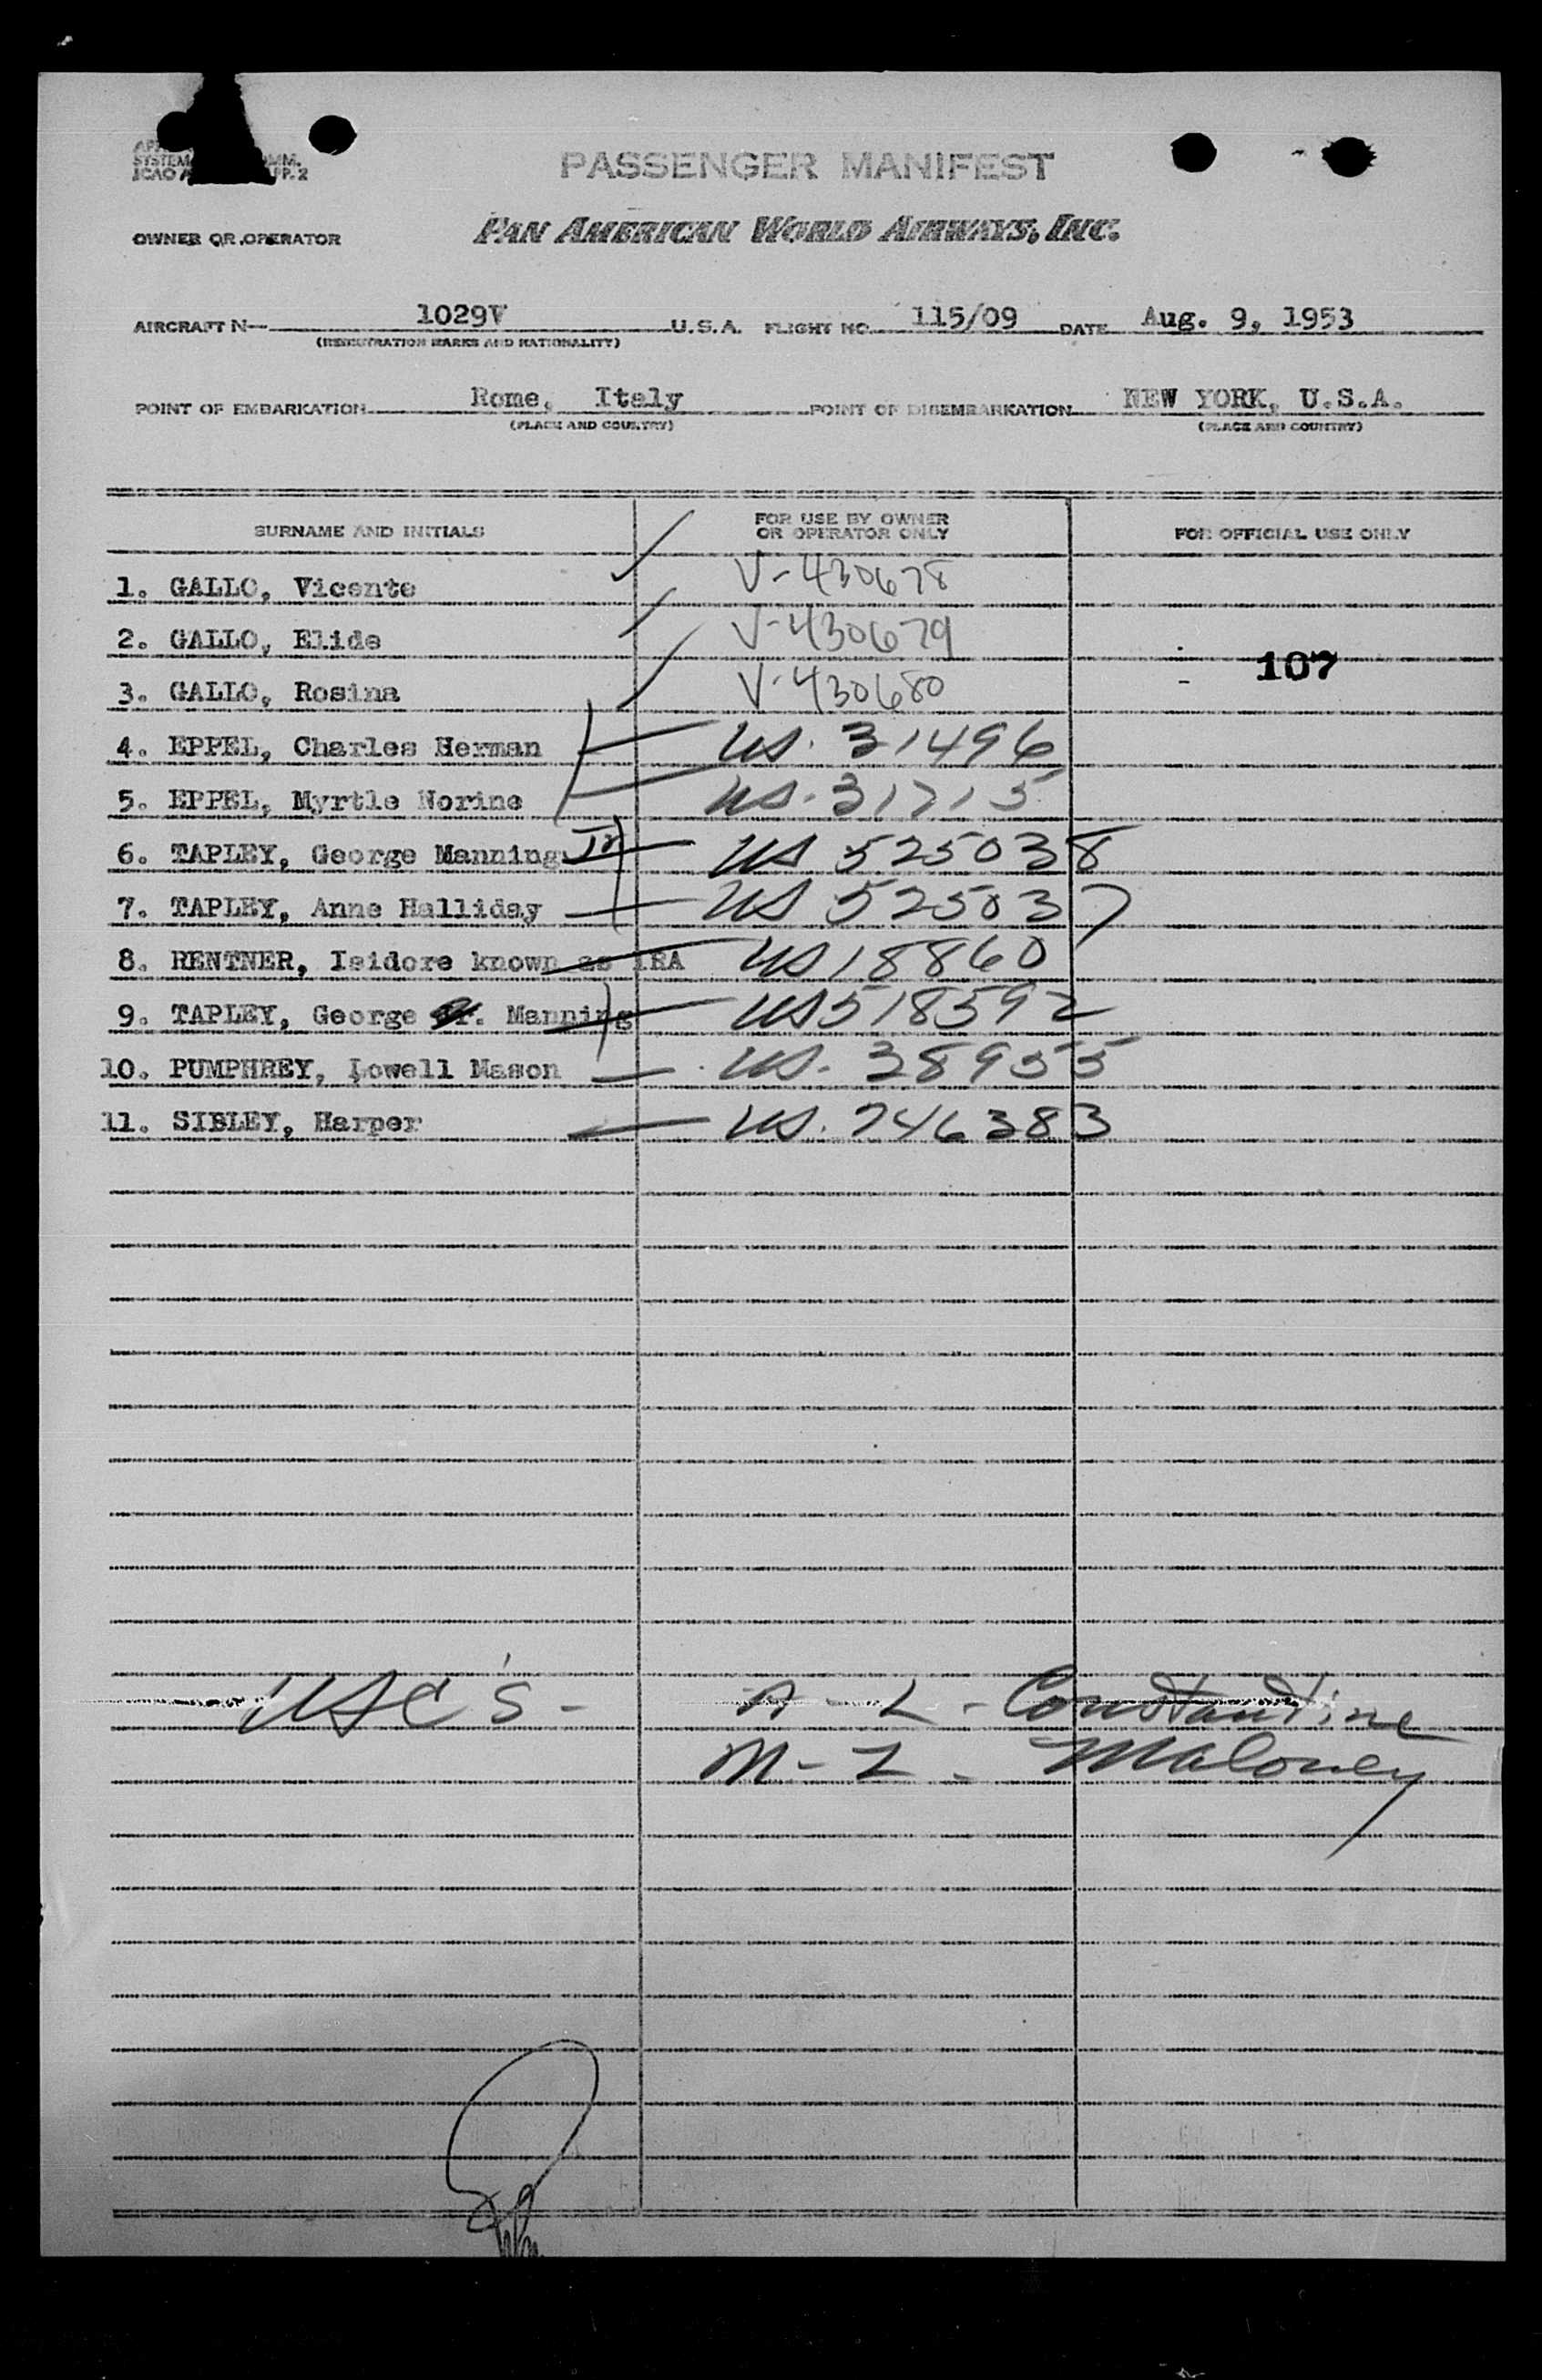 SYSTEM
ICAO
PP. 2
PASSENGER MANIFEST
OWNER OR OPERATOR PAN AMERICAN WORLD AIRWAYS, INC.
AIRCRAFT N— 1029V U.S.A. FLIGHT NO. 115/09 DATE Aug. 9, 1953
(REGISTRATION MARKS AND NATIONALITY)
POINT OF EMBARKATION Rome, Italy POINT OF DISEMBARKATION NEW YORK, U.S.A.
(PLACE AND COUNTRY) (PLACE AND COUNTRY)
SURNAME AND INITIALS FOR USE BY OWNER OR OPERATOR ONLY FOR OFFICIAL USE ONLY
1. GALLO, Vicente V-430678
2. GALLO, Elide V-430679
107
3. GALLO, Rosina V-430680
4. EPPEL, Charles Herman US. 31496
5. EPPEL, Myrtle Norine US. 31715
6. TAPLEY, George Manning Jr US 525038
7. TAPLEY, Anne Halliday US 525037
8. RENTNER, Isidore known as IRA US 18860
9. TAPLEY, George Manning US 518592
10. PUMPHREY, Lowell Mason US. 38955
11. SIBLEY, Harper US. 746383
USC's - A - L - Constantine
M - Z - Maloney